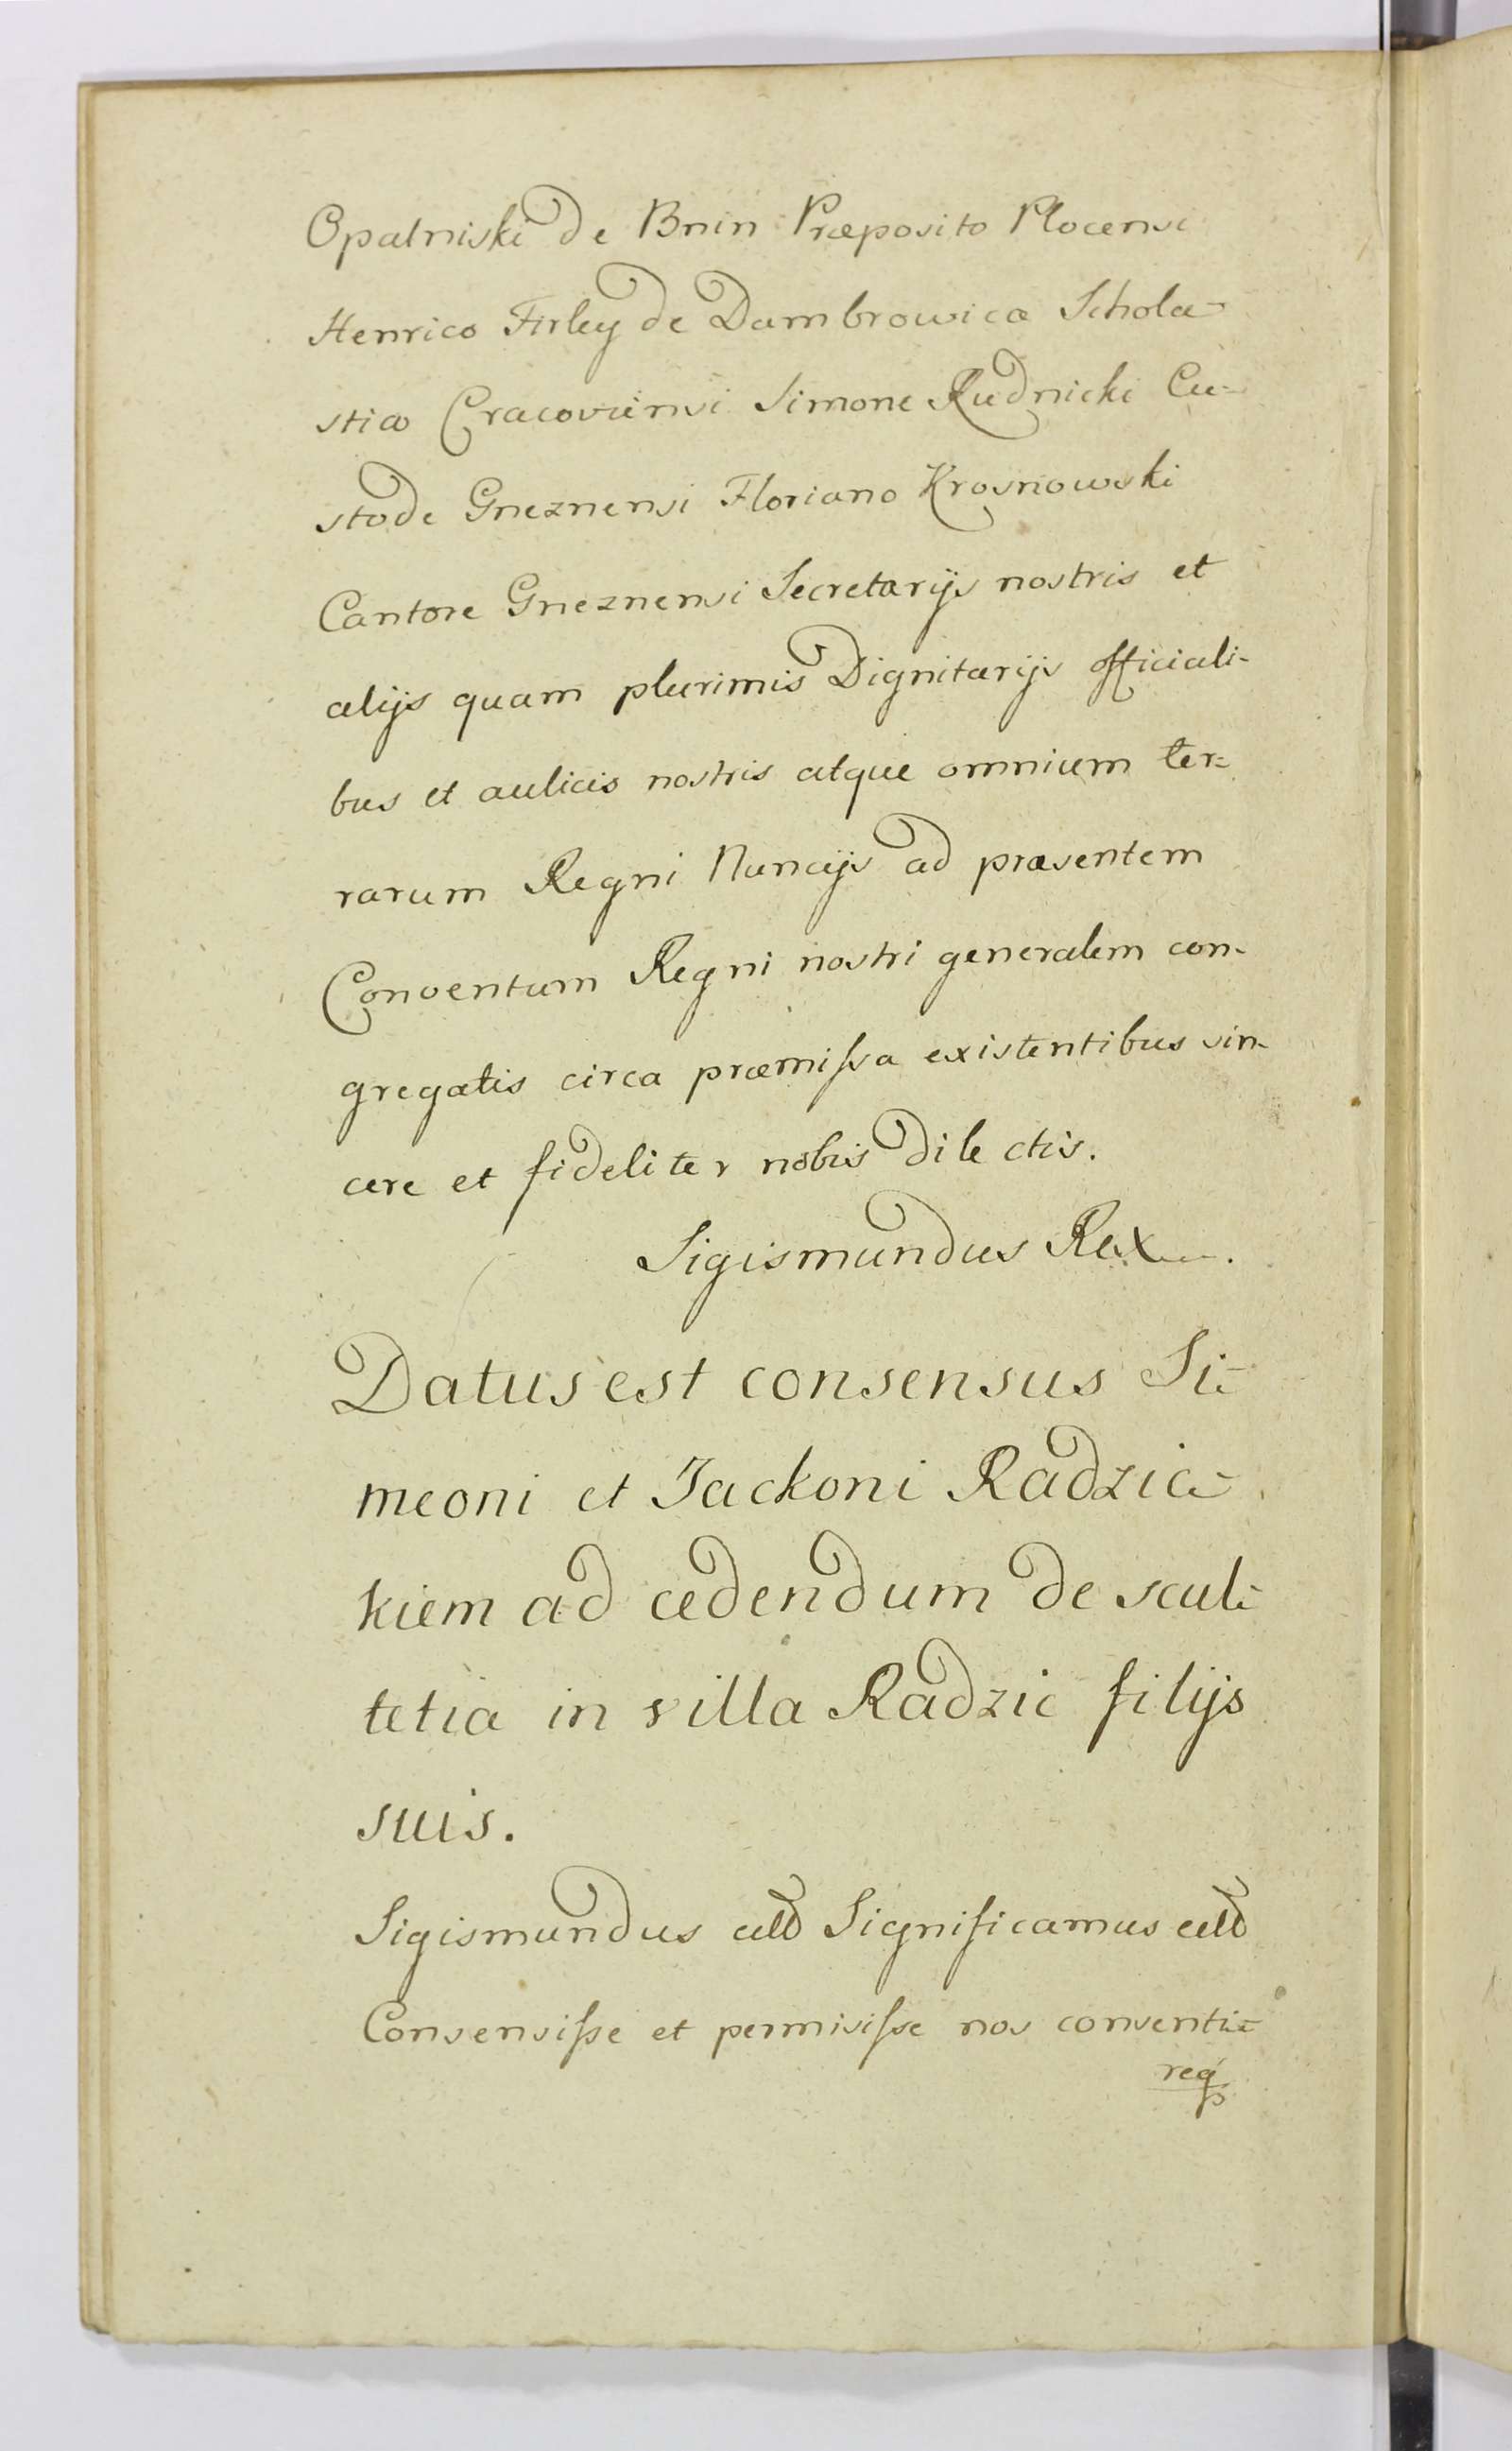 Opalniski de Bnin Præposito Plocensi
Henrico Firley de Dambrowica Schola-
stico Cracoviensi Simone Rudnicki Cu-
stode Gneznensi Floriano Krosnowski
Cantore Gneznensi Secretarijs nostris et
alijs quam plurimis Dignitarijs officiali-
bus et aulicis nostris atque omnium ter-
rarum Regni Nuncijs ad præsentem
Conventum Regni nostri generalem con-
gregatis circa præmiſsa existentibus sin-
cere et fideliter nobis dilectis.
Sigismundus Rex.
Datus est consensus Si-
meoni et Jackoni Radzic-
kiem ad cedendum de scul-
tetia in villa Radzic filijs
suis.
Sigismundus Significamus
Consensiſse et permisiſse nos consenti-